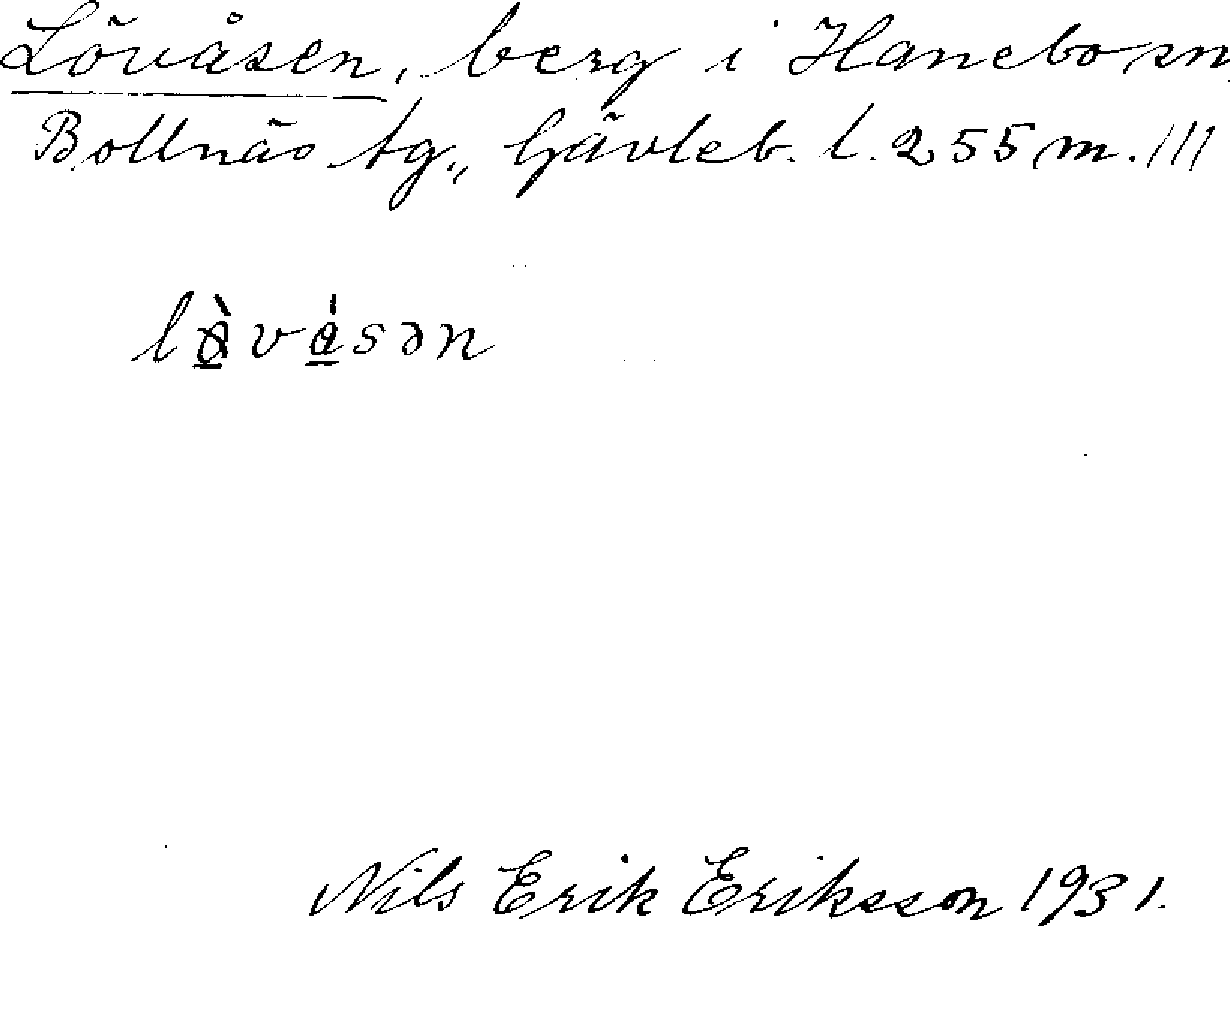 Lövåsen, berg i Hanebo sn
Bollnäs tg., Gävleb. l. 255 m. ///
lø̱̀vǻ̱sən
Nils Erik Eriksson 1931.